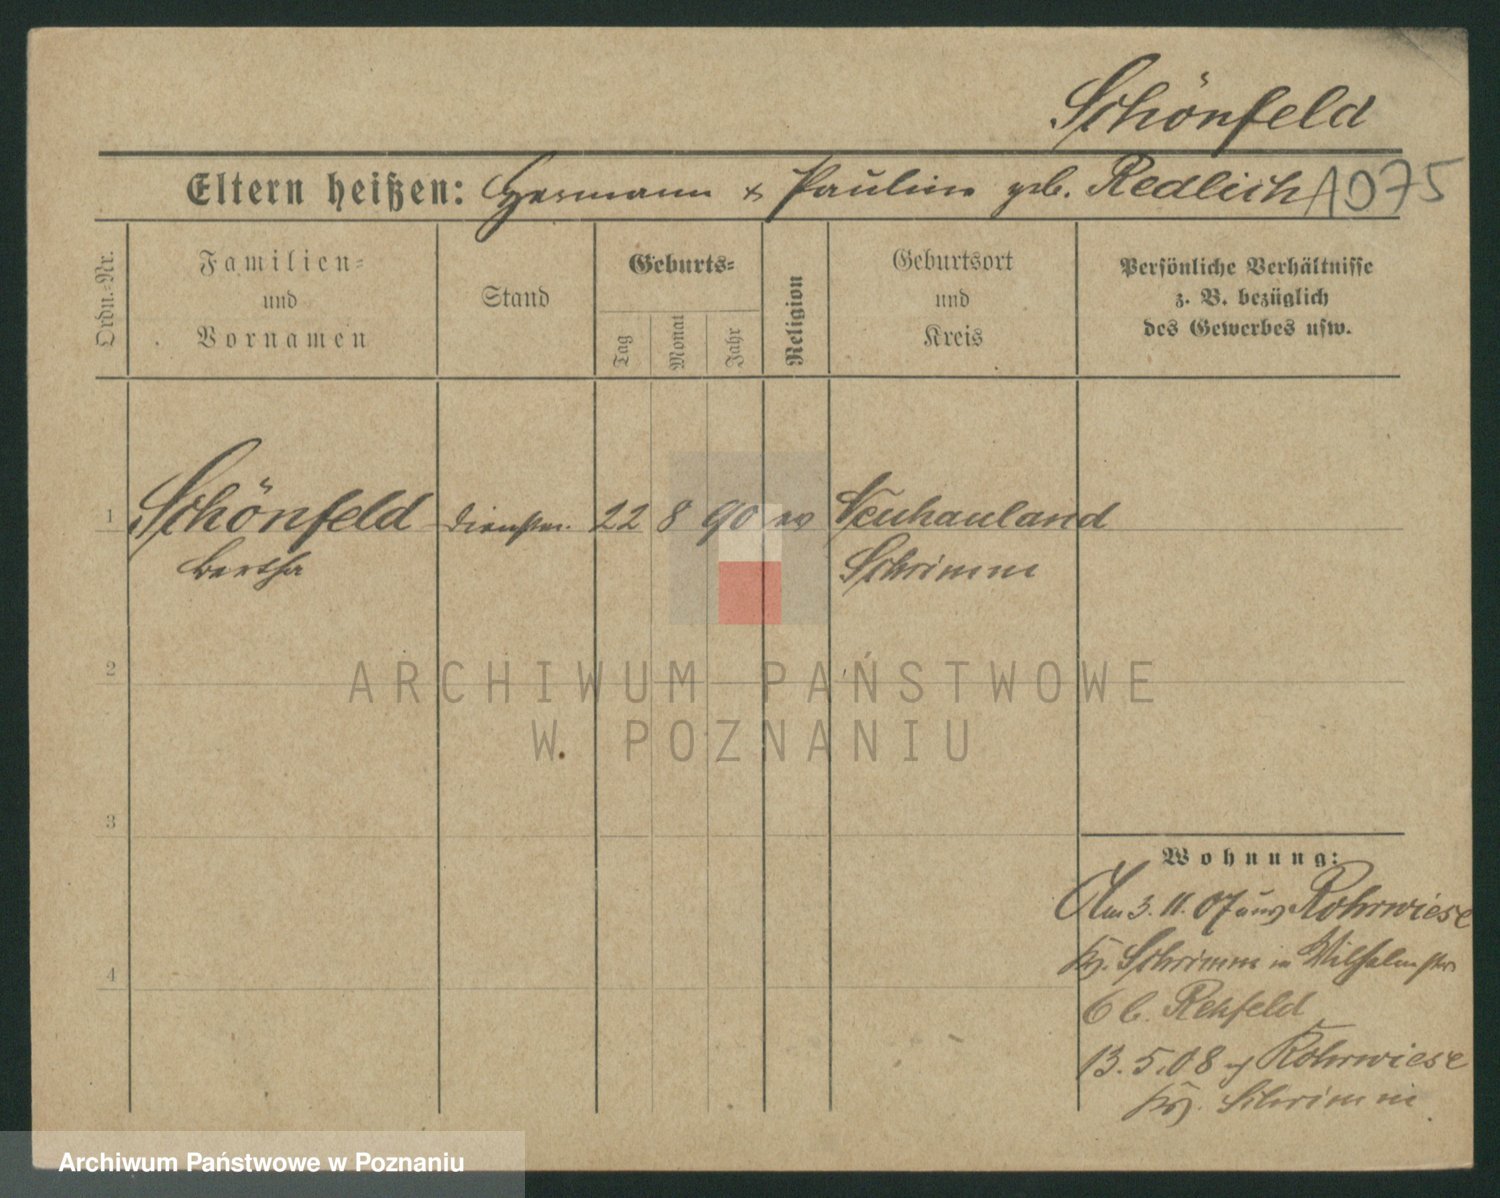 Schönfeld
Eltern heißen: Hermann & Pauline geb. Redlich
Ordn.-Nr.
Familien-
und
Vornamen
Stand
Geburts-
Tag
Monat
Jahr
Religion
Geburtsort
und
Kreis
Persönliche Verhältnisse
z. B. bezüglich
des Gewerbes usw.
1 Schönfeld Dienstm. 22 8 90 ev Neuhauland
Bertha Schrimm
2
3
4
Wohnung:
Am 3. 11. 07 aus Rohrwiese
Krs. Schrimm in Wilhelmstr
6 b. Rehfeld
13. 5. 08 Rohrwiese
Krs. Schrimm
ARCHIWUM PAŃSTWOWE
W POZNANIU
Archiwum Państwowe w Poznaniu